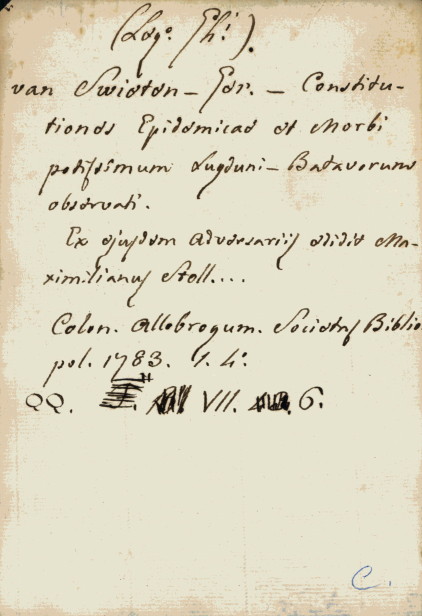 van Swieten - Ger. - Constitu-
tiones Epidemicae et Morbi
potissimum Lugduni - Batavorum
observati.
Ex ejusdem adversariis edidit Ma-
ximilianus Stoll....
Colon. Allobrogum. Societas Biblio
pol. 1783. 1. 4º.
QQ. VII. 6.
C.